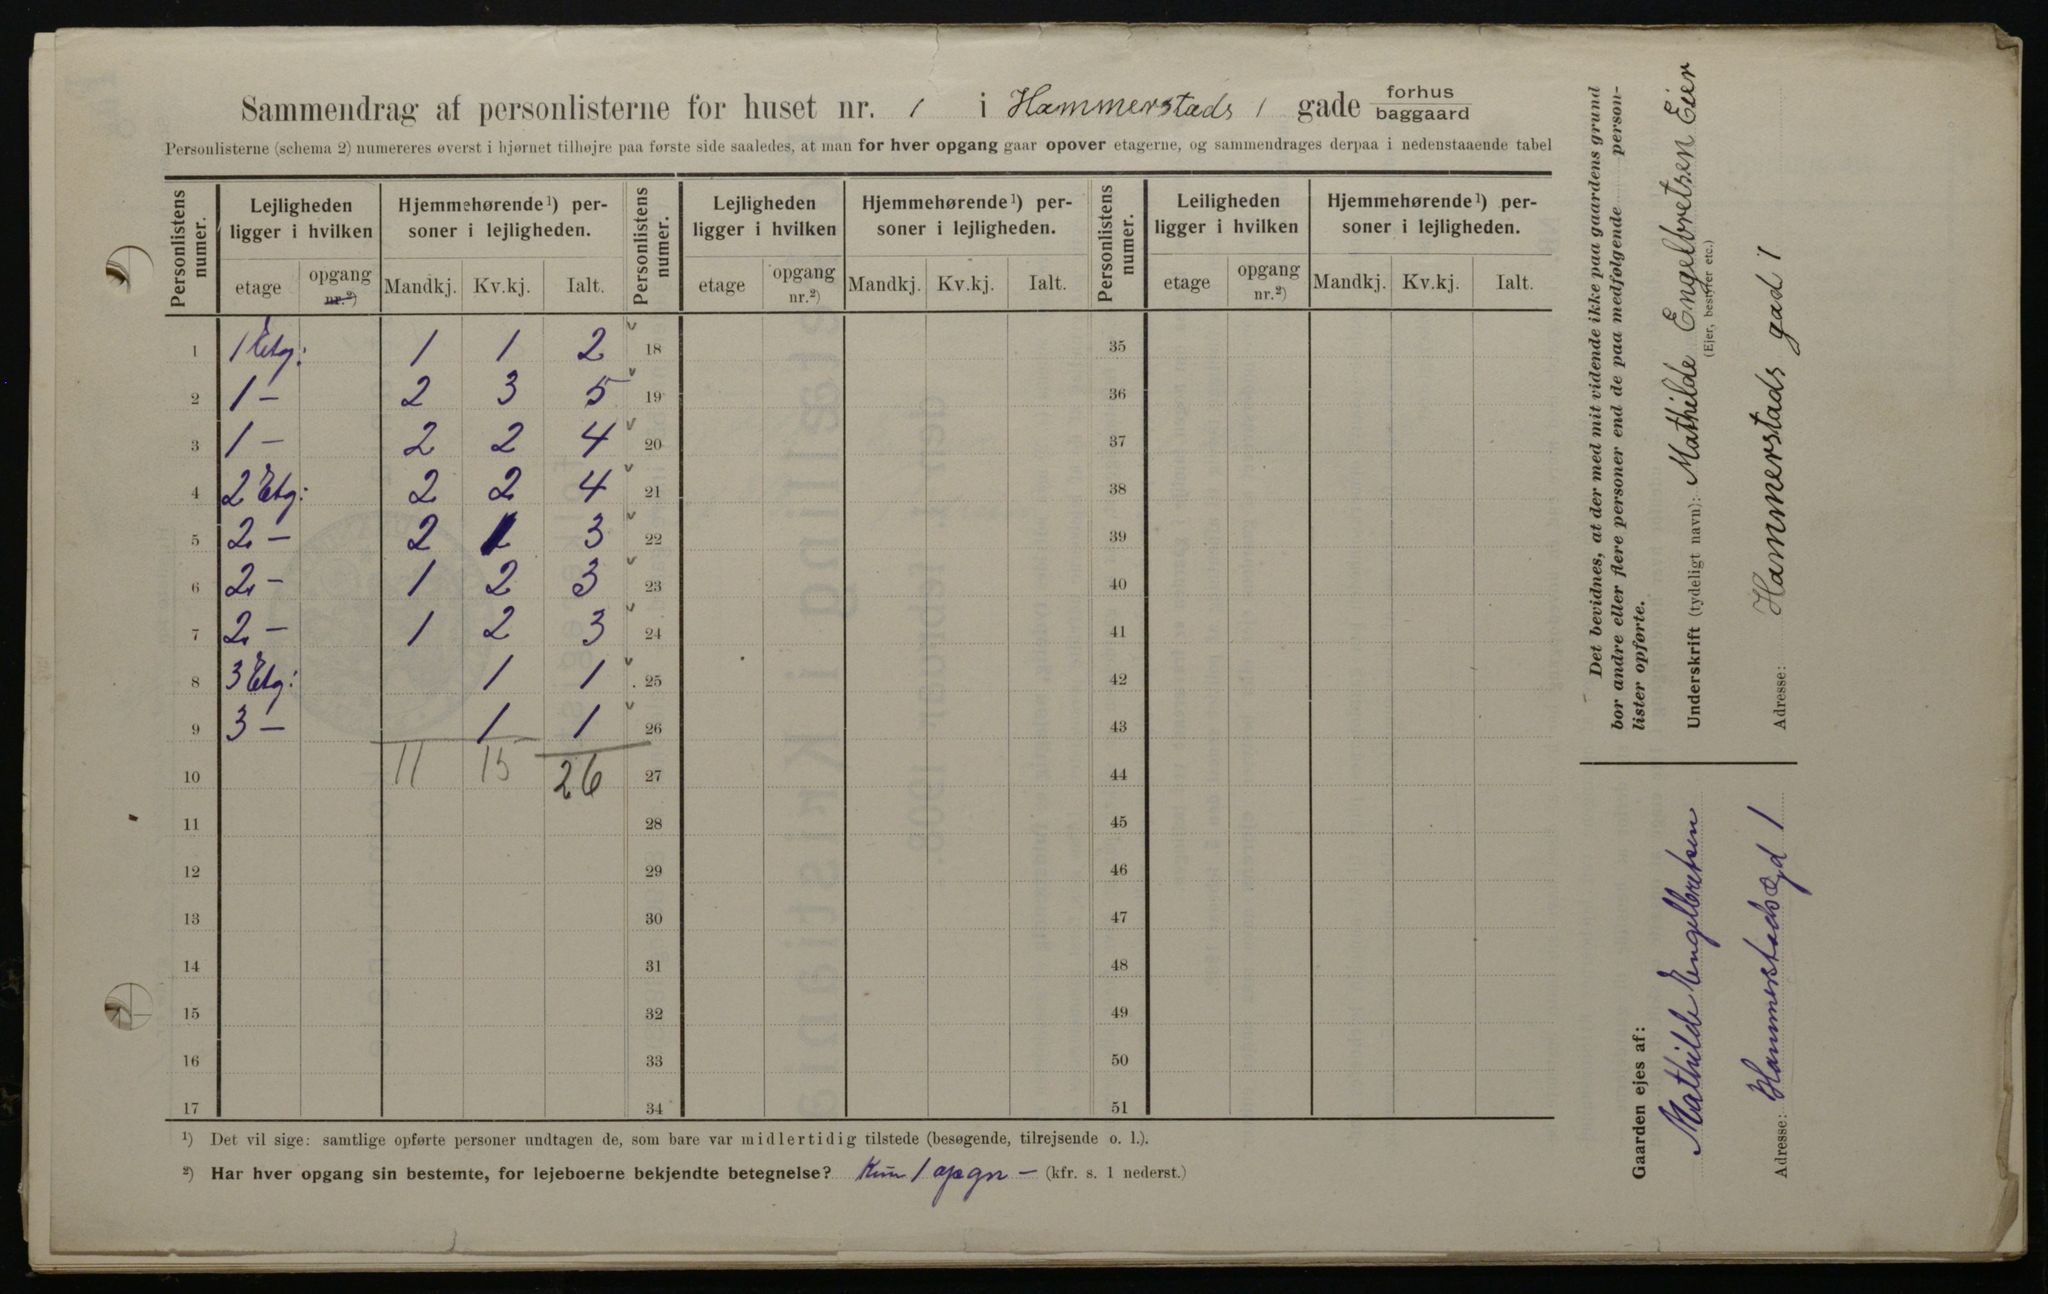 Sammendrag af personlisterne for huset nr. 1 i Hammerstads 1 gade forhus
baggaard
Personlisterne (schema 2) numereres øverst i hjørnet tilhøjre paa første side saaledes, at man for hver opgang gaar opover etagerne, og sammendrages derpaa i nedenstaaende tabel
Personlistens numer. Lejligheden ligger i hvilken Hjemmehørende¹) personer i lejligheden. Personlistens numer. Lejligheden ligger i hvilken Hjemmehørende¹) personer i lejligheden. Personlistens numer. Leiligheden ligger i hvilken Hjemmehørende¹) personer i lejligheden.
etage opgang nr.²) Mandkj. Kv.kj. Ialt. etage opgang nr.²) Mandkj. Kv.kj. Ialt. etage opgang nr.²) Mandkj. Kv.kj. Ialt.
1 1 Etg: 1 1 2 18 35
2 1 – 2 3 5 19 36
3 1 – 2 2 4 20 37
4 2 Etg: 2 2 4 21 38
5 2 – 2 1 3 22 39
6 2 – 1 2 3 23 40
7 2 – 1 2 3 24 41
8 3 Etg: 1 1 25 42
9 3 – 1 1 26 43
10 11 15 26 27 44
11 28 45
12 29 46
13 30 47
14 31 48
15 32 49
16 33 50
17 34 51
¹) Det vil sige: samtlige opførte personer undtagen de, som bare var midlertidig tilstede (besøgende, tilrejsende o. l.).
²) Har hver opgang sin bestemte, for lejeboerne bekjendte betegnelse? Kun 1 opgn – (kfr. s. 1 nederst.)
Det bevidnes, at der med mit vidende ikke paa gaardens grund
bor andre eller flere personer end de paa medfølgende person-
lister opførte.
Underskrift (tydeligt navn): Mathilde Engelbretsen Eier
(Ejer, bestyrer etc.)
Adresse: Hammerstads gad 1
Gaarden ejes af:
Mathilde Engelbretsen
Adresse: Hammerstadsgd 1